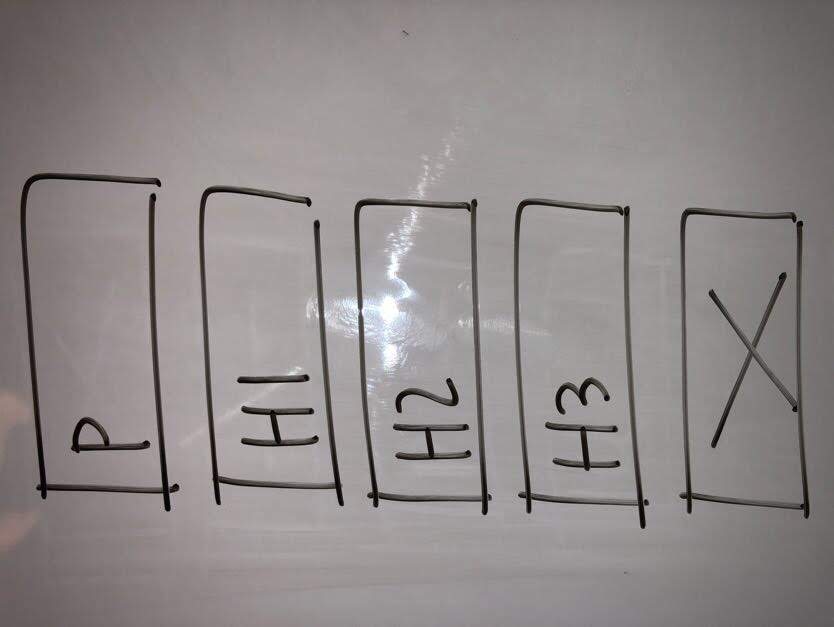 P
H1
H2
H3
X